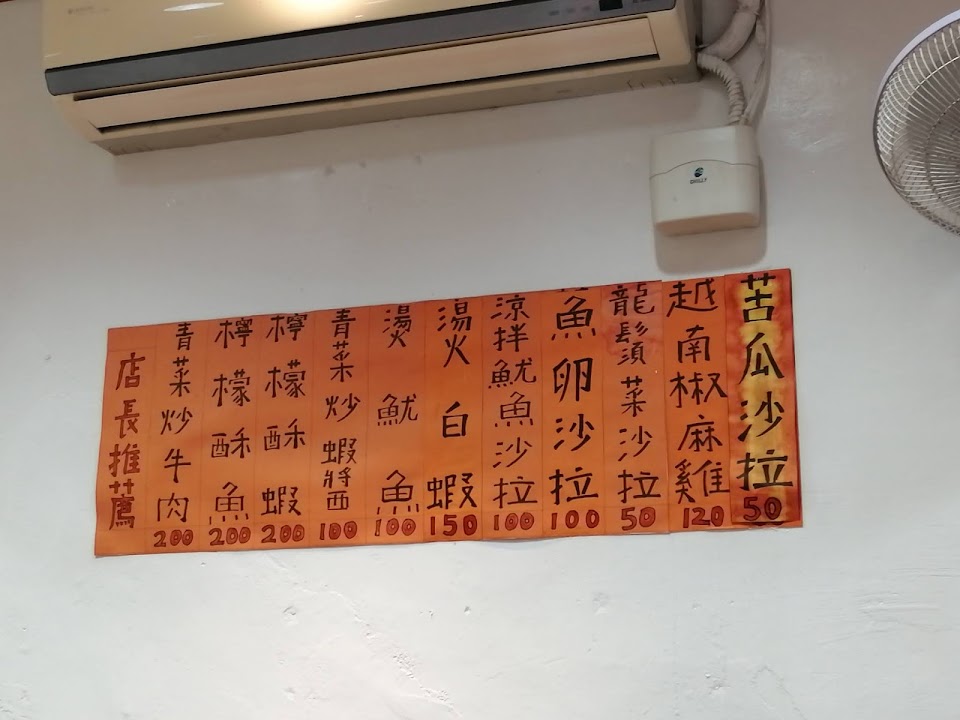 店長推薦
青菜炒牛肉 200
檸檬酥魚 200
檸檬酥蝦 200
青菜炒蝦醬 100
燙魷魚 100
燙白蝦 150
涼拌魷魚沙拉 100
魚卵沙拉 100
龍鬚菜沙拉 50
越南椒麻雞 120
苦瓜沙拉 50